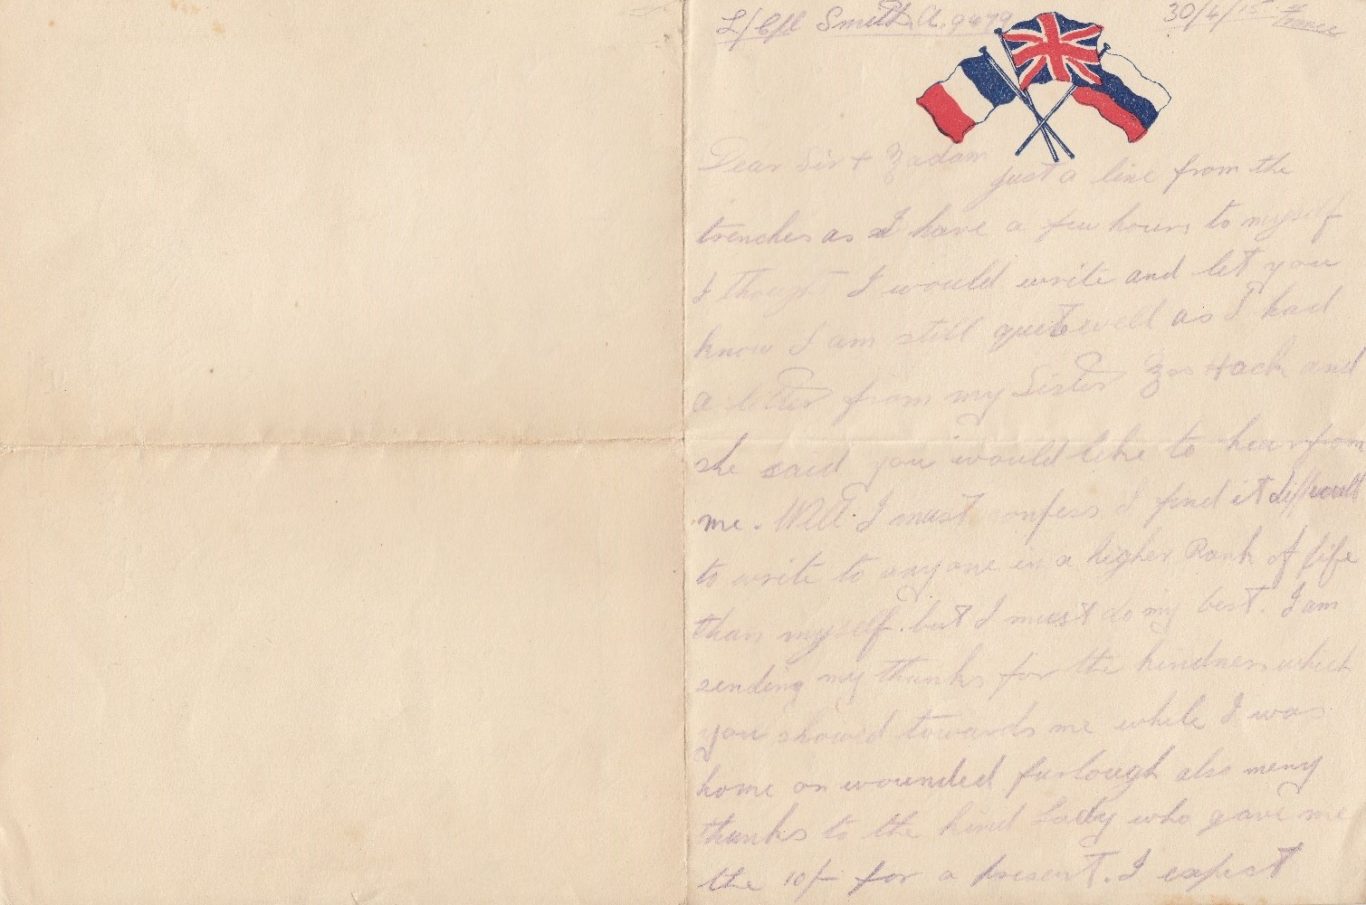 L/Cpl Smith. A. 9479 30/4/15 France
Dear Sir + Madam just a line from the
trenches as I have a few hours to myself
I thought I would write and let you
know I am still quite well as I had
a letter from my Sister Mrs Hack and
she said you would like to hear from
me. Well. I must confess I find it difficult
to write to anyone in a higher Rank of Life
than myself. but I must do my best. I am
sending my thanks for the kindness which
you showed towards me while I was
home on wounded furlough also meny
thanks to the kind Lady who gave me
the 10/- for a present. I expect